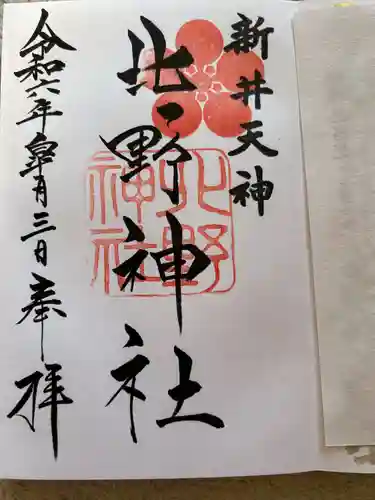 新井天神
北野神社
令和六年皐月三日奉拝
北野
神社